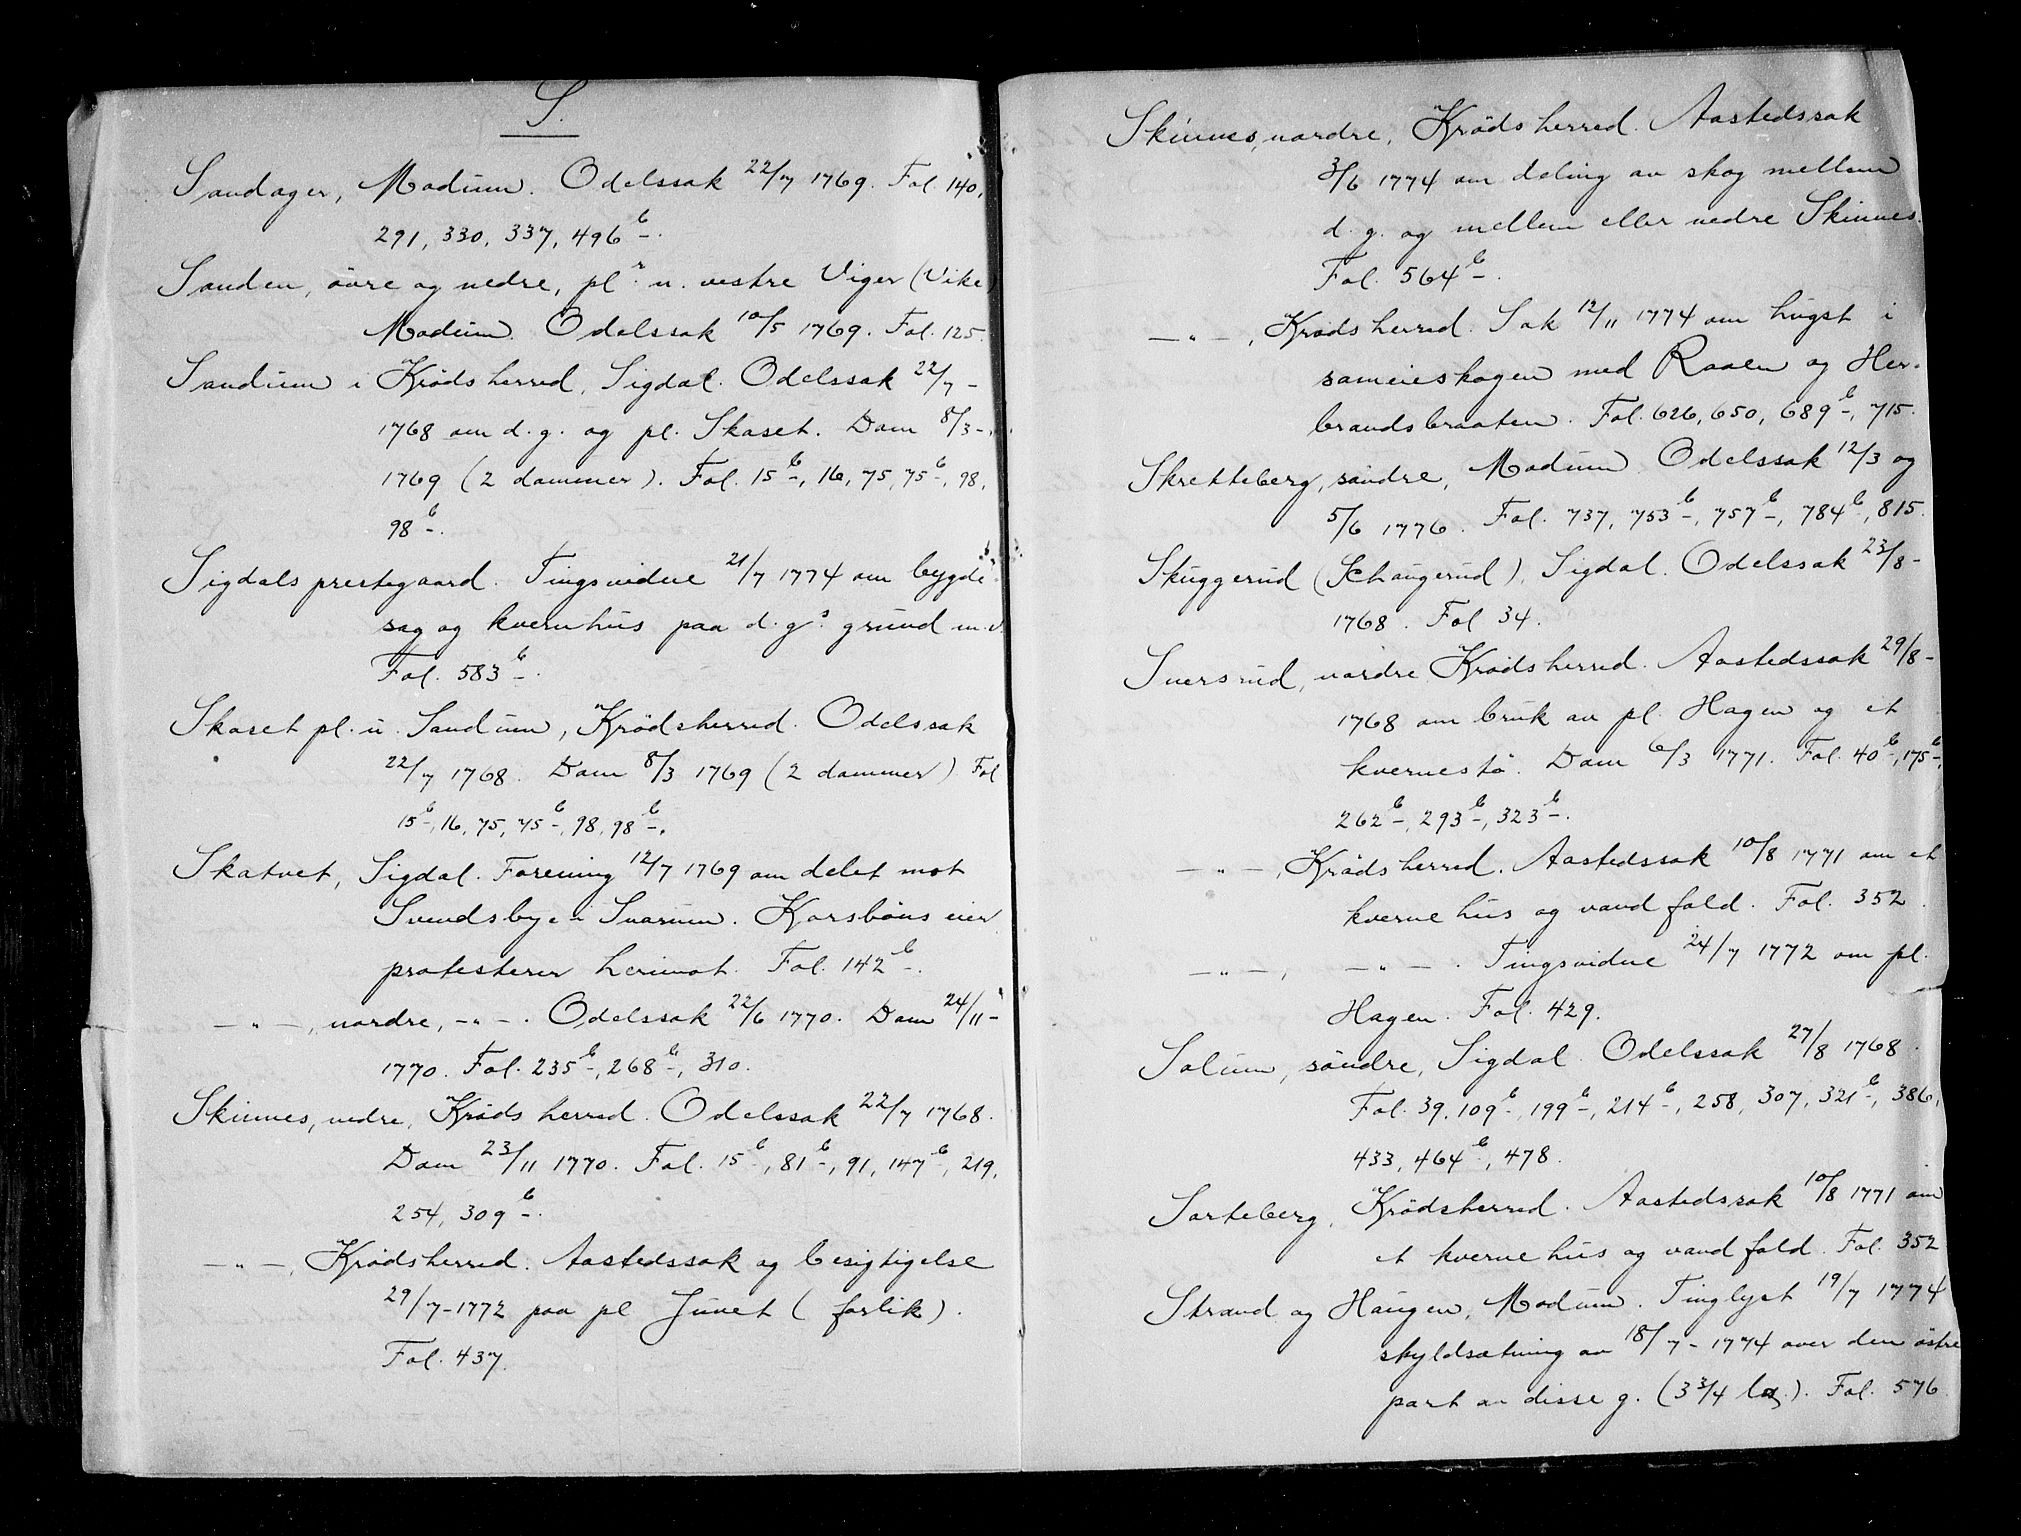 S.
Sandager, Modum. Odelssak 22/7 1769. Fol. 140,
291, 330, 337, 496 b.
Sanden, övre og nedre, pl.r u. vestre Viger (Vike)
Modum. Odelssak 10/5 1769. Fol. 125.
Sandum i Krødsherred, Sigdal. Odelssak 22/7 -
1768 om d. g. og pl. Skaset. Dom 8/3 -
1769 (2 dommer). Fol. 15 b, 16, 75, 75 b, 98,
98 b.
Sigdals prestegaard. Tingsvidne 21/7 1774 om bygde-
sag og kvernhus paa d. g.s grund m.v.
Fol. 583 b.
Skaset pl. u. Sandum, Krødsherred. Odelssak
22/7 1768. Dom 8/3 1769 (2 dommer) Fol
15 b, 16, 75, 75 b, 98, 98 b.
Skatvet, Sigdal. Forening 12/7 1769 om delet mot
Svendsbye i Snarum. Korsböns eier
protesterer herimot. Fol. 142 b.
—„—, nordre, —„—. Odelssak 22/6 1770. Dom 24/11 -
1770. Fol. 235 b, 268 b, 310.
Skinnes, nedre, Krødsherred. Odelssak 22/7 1768.
Dom 23/11 1770. Fol. 15 b, 81 b, 91, 147 b, 219,
254, 309 b.
—„—, Krødsherred. Aastedssak og besigtigelse
29/7-1772 paa pl Juvet (forlik).
Fol. 437.
Skinnes, nordre, Krødsherred. Aastedssak
3/6 1774 om deling av skog mellem
d. g. og mellem eller nedre Skinnes.
Fol. 564 b.
—„—, Krødsherred. Sak 12/11 1774 om hugst i
sameieskogen med Raaen og Her-
brandsbraaten. Fol. 626, 650, 689 b, 715.
Skretteberg, söndre, Modum. Odelssak 12/3 og
5/6 1776. Fol. 737, 753 b, 757 b, 784 b, 815.
Skuggerud (Schougerud), Sigdal. Odelssak 23/8 -
1768. Fol. 34.
Snersrud, nordre Krødsherred. Aastedssak 29/8 -
1768 om bruk av pl. Hagen og et
kvernestö. Dom 6/3 1771. Fol. 40 b, 175 b,
262 b, 293 b, 323 b.
—„—, Krødsherred. Aastedssak 10/8 1771 om et
kverne hus og vand fald. Fol. 352.
—„—, —„—. Tingsvidne 24/7 1772 om pl.
Hagen. Fol. 429.
Solum, söndre, Sigdal. Odelssak 27/8 1768.
Fol. 39, 109 b, 199 b, 214 b, 258, 307, 321 b, 386,
433, 464 b, 478.
Sorteberg, Krødsherred. Aastedssak 10/8 1771 om
et kverne hus og vand fald. Fol. 352
Strand og Haugen, Modum. Tinglyst 19/7 1774
skyldsætning av 18/7 - 1774 over den östre
part av disse g. (3 3/4 ). Fol. 576